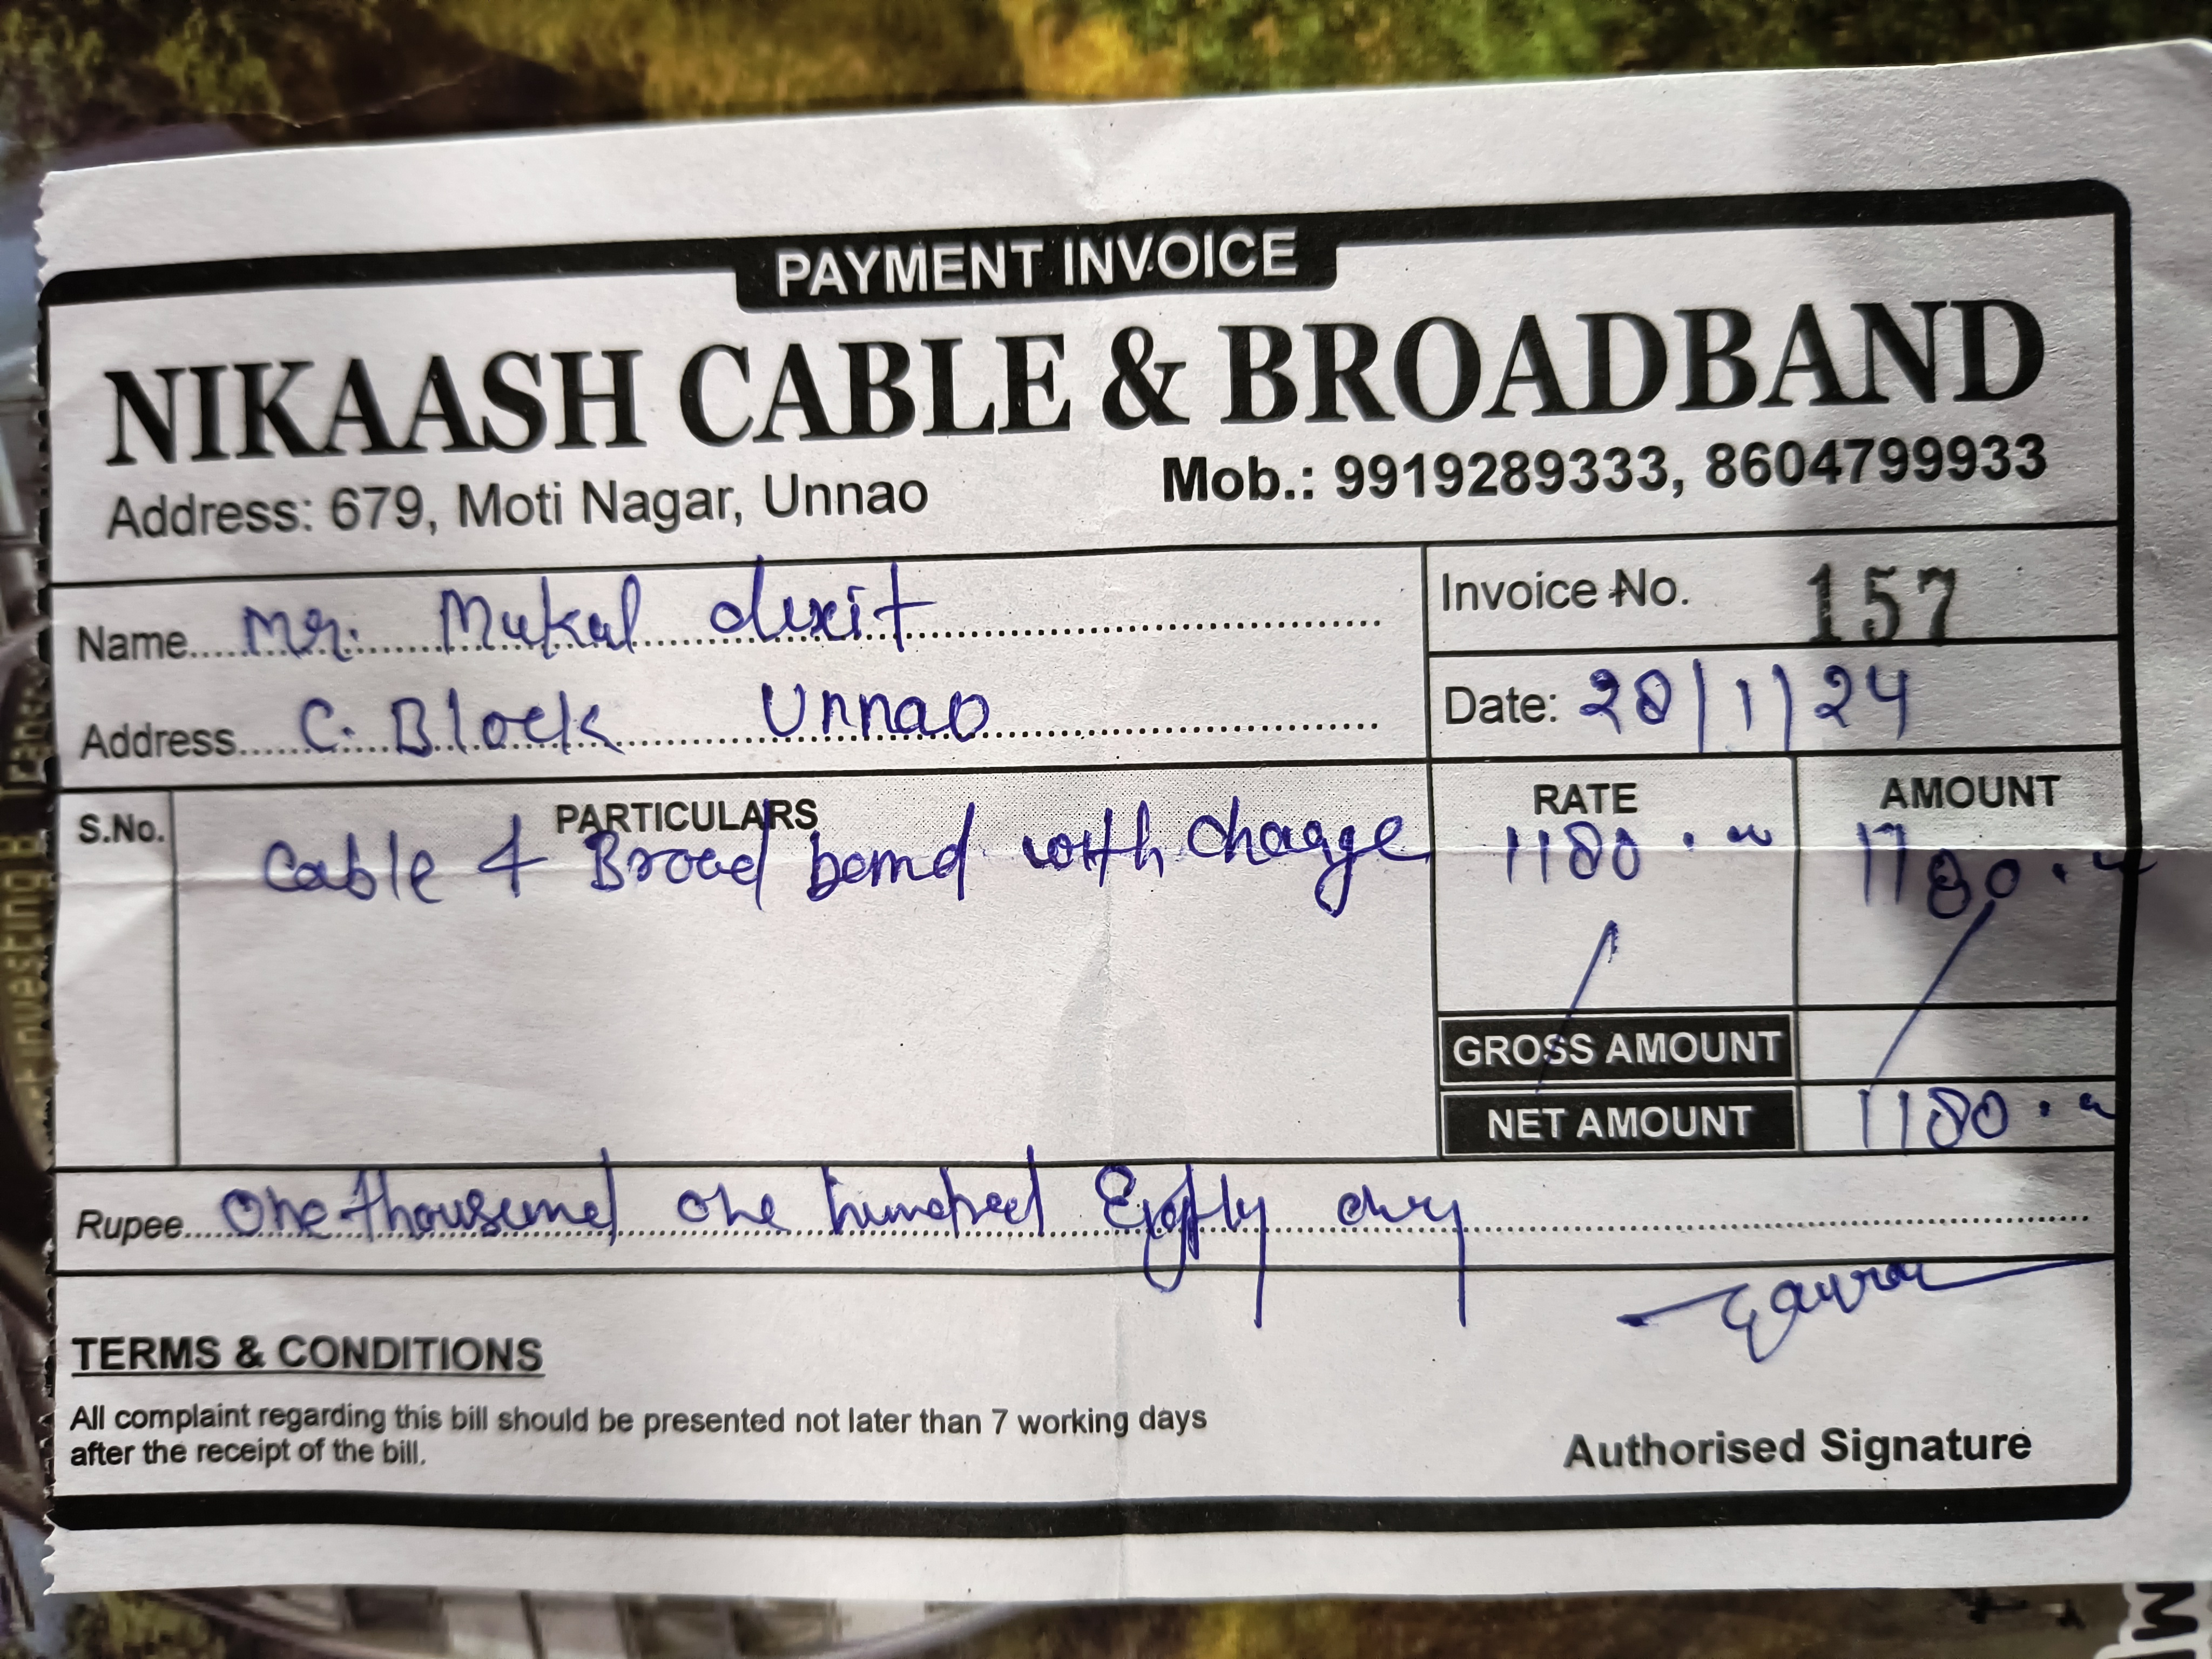 PAYMENT INVOICE
NIKAASH CABLE & BROADBAND
Address: 679, Moti Nagar, Unnao Mob.: 9919289333, 8604799933
Name Mr. Mukal dixit
Invoice No. 157
Address C. Block Unnao
Date: 28/1/24
S.No. PARTICULARS RATE AMOUNT
Cable & Broad band with charge 1180.00 1180.00
GROSS AMOUNT
NET AMOUNT 1180.00
Rupee One thousand one hundred Eighty only
TERMS & CONDITIONS
All complaint regarding this bill should be presented not later than 7 working days
after the receipt of the bill.
Authorised Signature